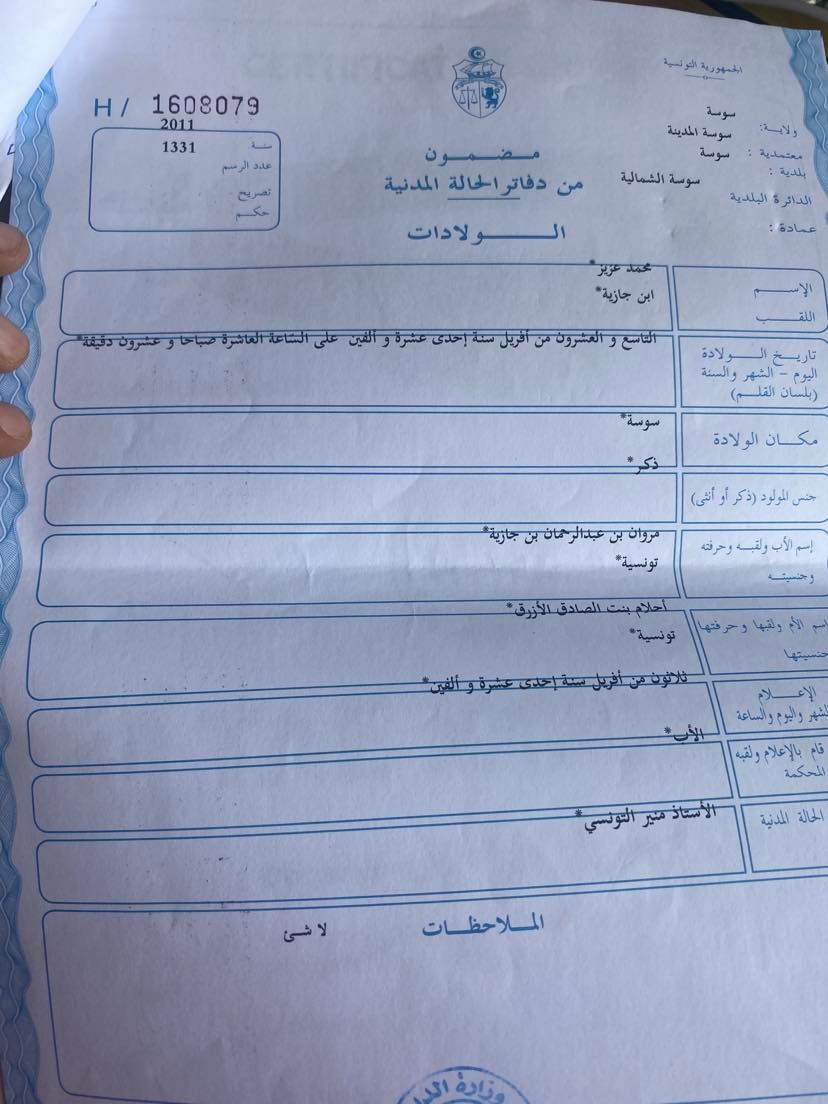 الجمهورية التونسية
ولاية: سوسة
معتمدية: سوسة المدينة
بلدية: سوسة
الدائرة البلدية سوسة الشمالية
عمادة:
H/ 1608079
سنة 2011
عدد الرسم 1331
تصريح
حكم
مضمون
من دفاتر الحالة المدنية
الولادات
الإسم محمد عزيز*
اللقب ابن جازية*
تاريخ الولادة التاسع و العشرون من أفريل سنة إحدى عشرة و ألفين على الساعة العاشرة صباحا و عشرون دقيقة*
اليوم - الشهر والسنة
(بلسان القلم)
مكان الولادة سوسة*
جنس المولود (ذكر أو أنثى) ذكر*
إسم الأب ولقبه وحرفته مروان بن عبدالرحمان بن جازية*
وجنسيته تونسية*
اسم الأم ولقبها وحرفتها أحلام بنت الصادق الأزرق*
جنسيتها تونسية*
الإعلام ثلاثون من أفريل سنة إحدى عشرة و ألفين*
الشهر واليوم والساعة
قام بالإعلام ولقبه الأب*
المحكمة
الحالة المدنية الأستاذ منير التونسي*
الملاحظات
لا شئ
وزارة